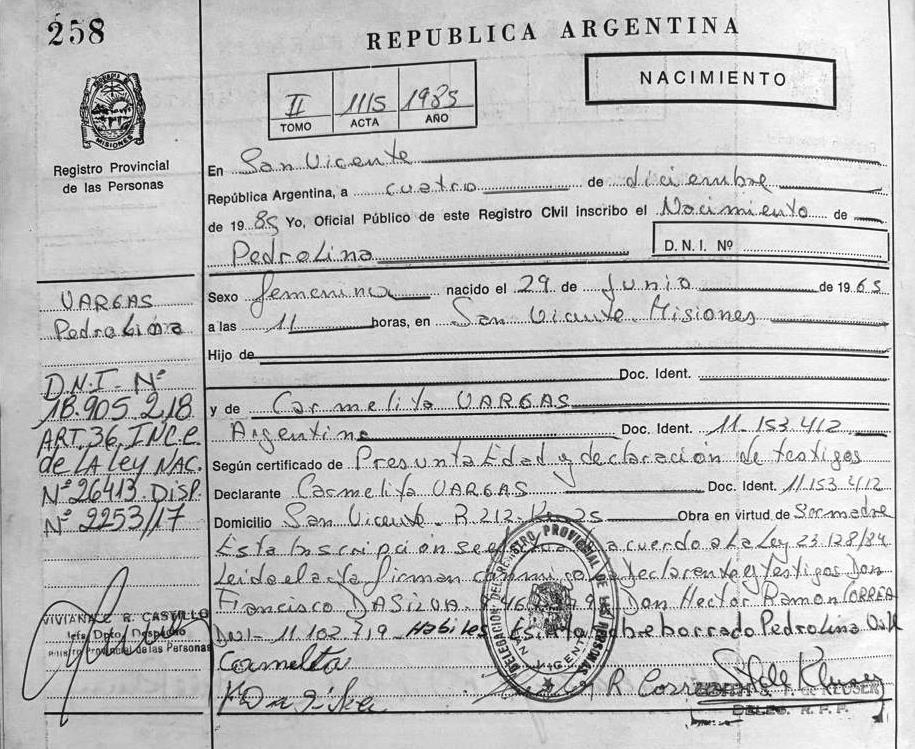 258
REPUBLICA ARGENTINA
NACIMIENTO
II 1115 1985
TOMO ACTA AÑO
PROVINCIA DE MISIONES
Registro Provincial
de las Personas
En San Vicente
República Argentina, a cuatro de diciembre
de 1985 Yo, Oficial Público de este Registro Civil inscribo el Nacimiento de
Pedrolina D.N.I. Nº
Sexo femenina nacido el 29 de junio de 1965
a las 11 horas, en San Vicente Misiones
Hijo de
Doc. Ident.
y de Carmelita VARGAS
Argentina Doc. Ident. 11.153.412
Según certificado de Presunta Edad y declaración de testigos
Declarante Carmelita VARGAS Doc. Ident. 11.153.412
Domicilio San Vicente R.212 Obra en virtud de Ser madre
Esta Inscripción se acuerdo a la Ley 23.128/84
Leido el acta firman declarante y testigos Don
Francisco DASILVA Don Hector Ramon CORREA
DNI- 11.102.719 Habiles sobreborrado Pedrolina
Carmelita
R. Correa
DELEG. R. P. P.
VARGAS
Pedrolina
D.N.I - Nº
18.905.218
ART. 36. INC. e.
de LA Ley NAC.
Nº 26413 DISP.
Nº 2253/17
VIVIANA E R. CASTILLO
Jefa Dpto. Despacho
Registro Provincial de las Personas
DELEGACION DEL REGISTRO PROVINCIAL DE LAS PERSONAS
SAN VICENTE